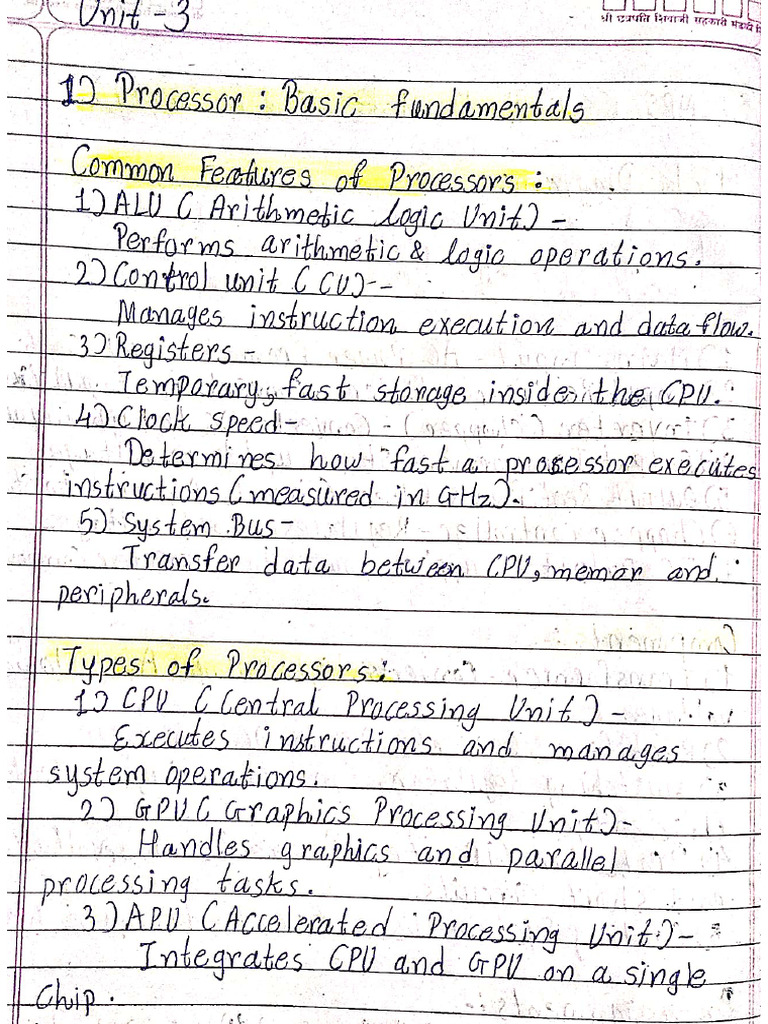 Unit - 3
श्री छत्रपति शिवाजी सहकारी
1) Processor : Basic fundamentals
Common Features of Processors :
1) ALU ( Arithmetic logic Unit ) -
Performs arithmetic & logic operations.
2) Control unit ( CU) --
Manages instruction execution and data flow.
3) Registers -
Temporary, fast storage inside the CPU.
4) Clock speed -
Determines how fast a processor executes
instructions ( measured in GHz ).
5) System Bus -
Transfer data between CPU, memor and
peripherals.
Types of Processors :
1) CPU ( Central Processing Unit ) -
Executes instructions and manages
system operations.
2) GPU ( Graphics Processing Unit ) -
Handles graphics and parallel
processing tasks.
3) APU ( Accelerated Processing Unit ) -
Integrates CPU and GPU on a single
Chip.